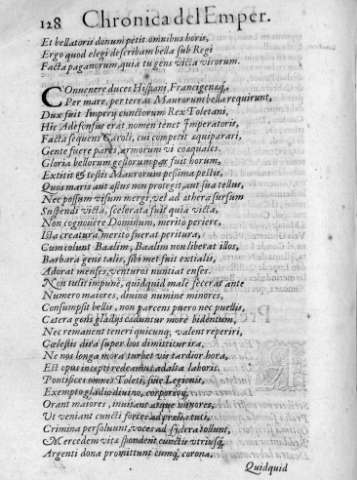 128 Chronica del Emper.
Et bellatori donum petit omnibus horis,
Ergo quod elegi describam bella sub Regi
Facta paganorum, quia tu gens victa virorum.
COnuenere duces Hispani, Francigenæq,
Per mare, per terras Maurorum bella requirunt,
Dux fuit Imperij cunctorum Rex Toletani,
Hic Adefonsus erat nomen tenet Imperatoris,
Facta sequens Caroli, cui competit æquiparari,
Gente fuere pares, armorum vi coæquales.
Gloria bellorum gestorum par fuit horum,
Extitit & testis Maurorum pessima pestis,
Quos maris aut æstus non protegit, aut sua tellus,
Nec possunt visum mergi, vel ad æthera sursum
Suspendi victa, scelerata fuit quia victa,
Non cognouere Dominum, merito periere,
Ista creatura merito fuerat peritura,
Cum colunt Baalim, Baalim non liberat illos,
Barbara gens talis, sibi met fuit exitialis,
Adorat menses, venturos nuntiat enses.
Non tulit impunè, quidquid male fecerat ante
Numero maiores, diuino numine minores,
Consumpsit bellis, non parcens puero nec puellis,
Cætera gens gladijs ceduntur more bidentum,
Nec remanent teneri quicunq, valent reperiri,
Cælestis dira super hos dimittitur ira,
Ne nos longa mora turbet vis tardior hora,
Est opus incepti redeamus ad alta laboris.
Pontifices omnes Toleti, siue Legionis,
Exempto gladio diuino, corporeoq,
Orant maiores, inuitant atque minores,
Vt veniant cuncti fortes ad prælia tuti,
Crimina persoluunt, voces ad sidera tollunt,
Mercedem vitæ spondent cunctis vtriusq,
Argenti dona promittunt cumq, corona,
Quidquid